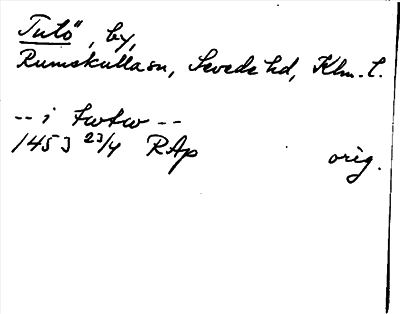 Tulö, by,
Rumskulla sn, Sevede hd, Klm. l.
-- i twtw --
1453 23/4 RAp orig.